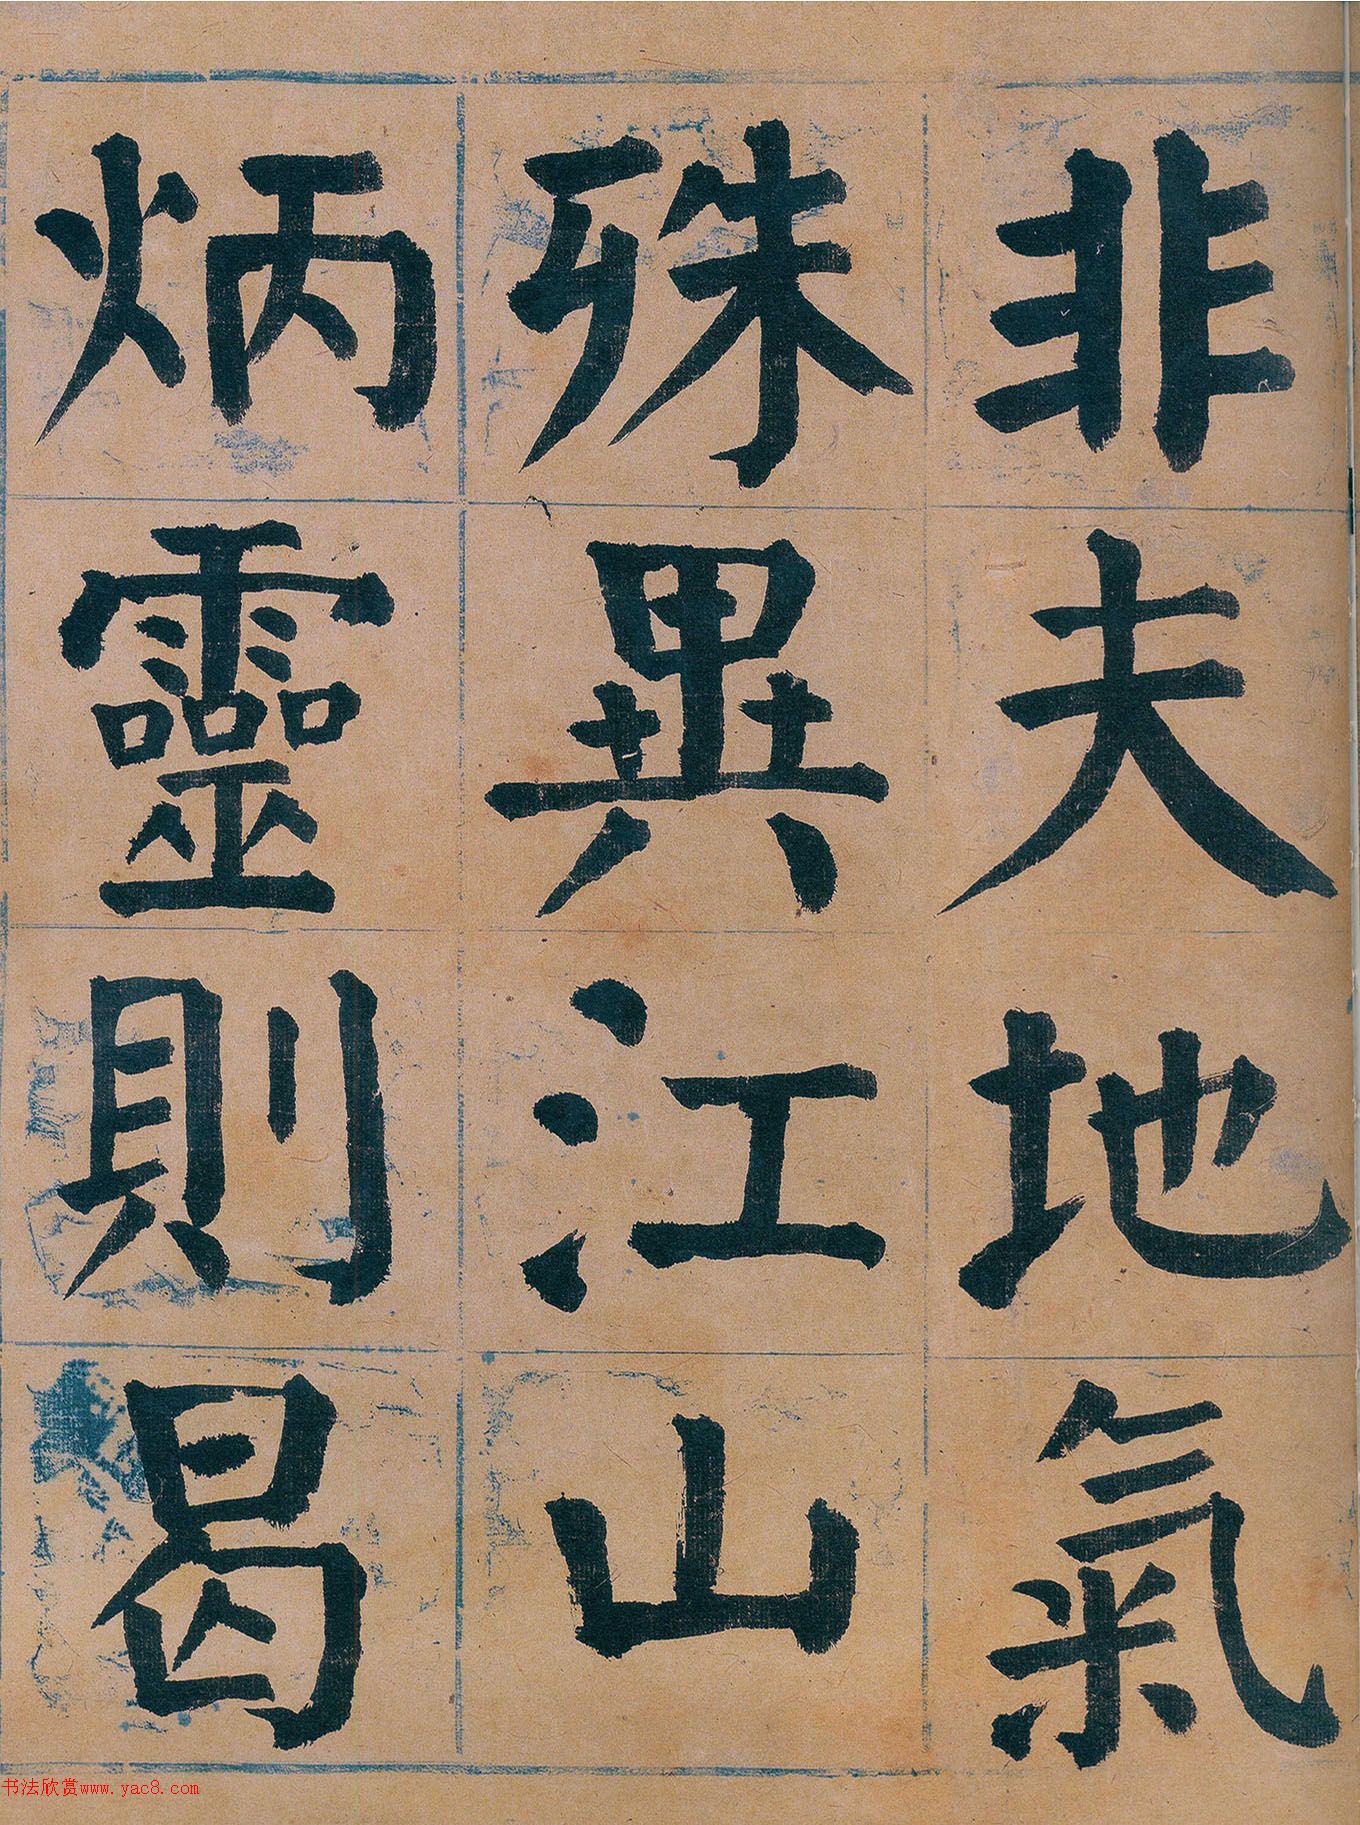 非夫地氣
殊異江山
炳靈則曷
书法欣赏www.yac8.com